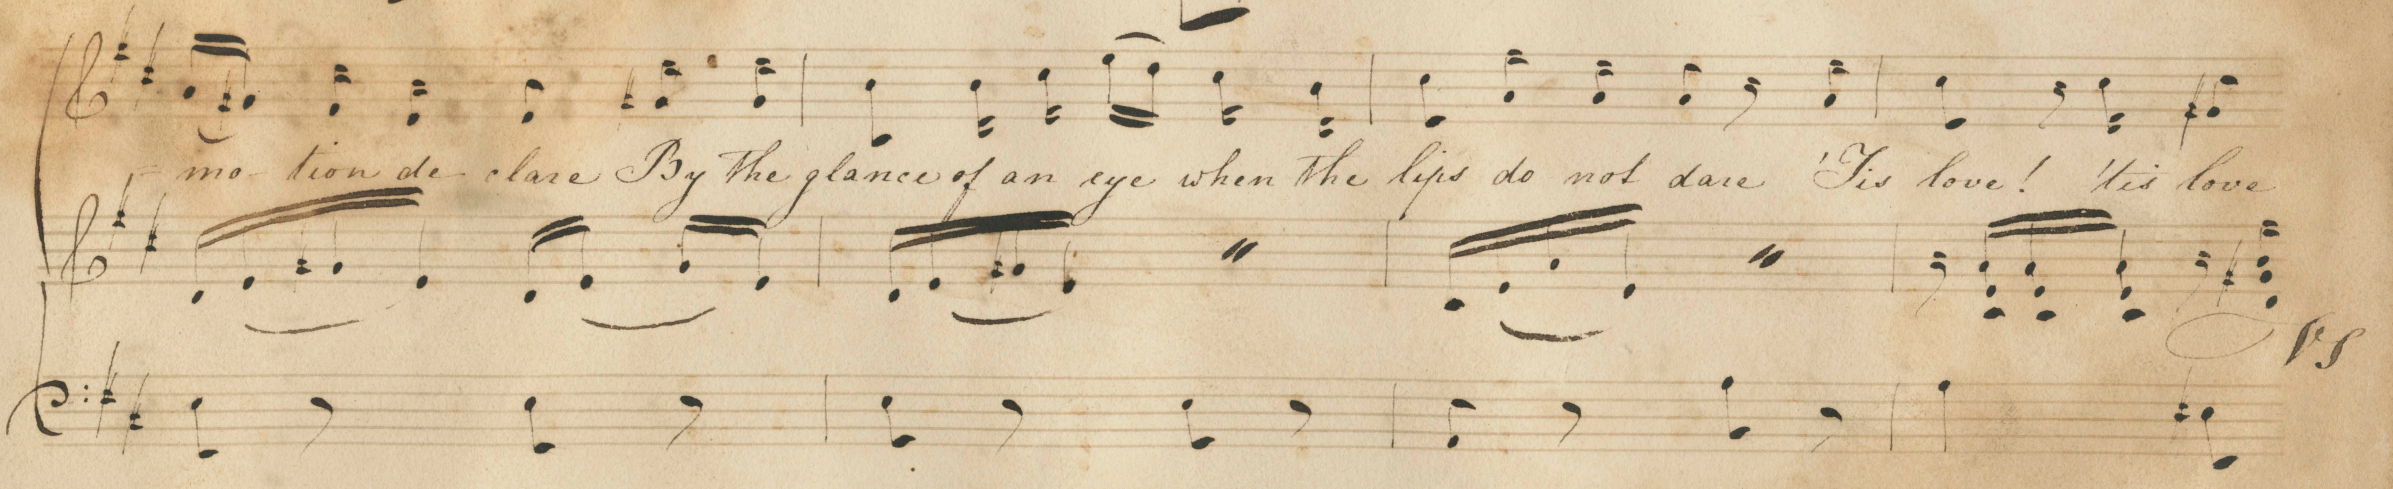 - mo - tion de - clare By the glance of an eye when the lips do not dare 'Tis love! 'tis love
VS